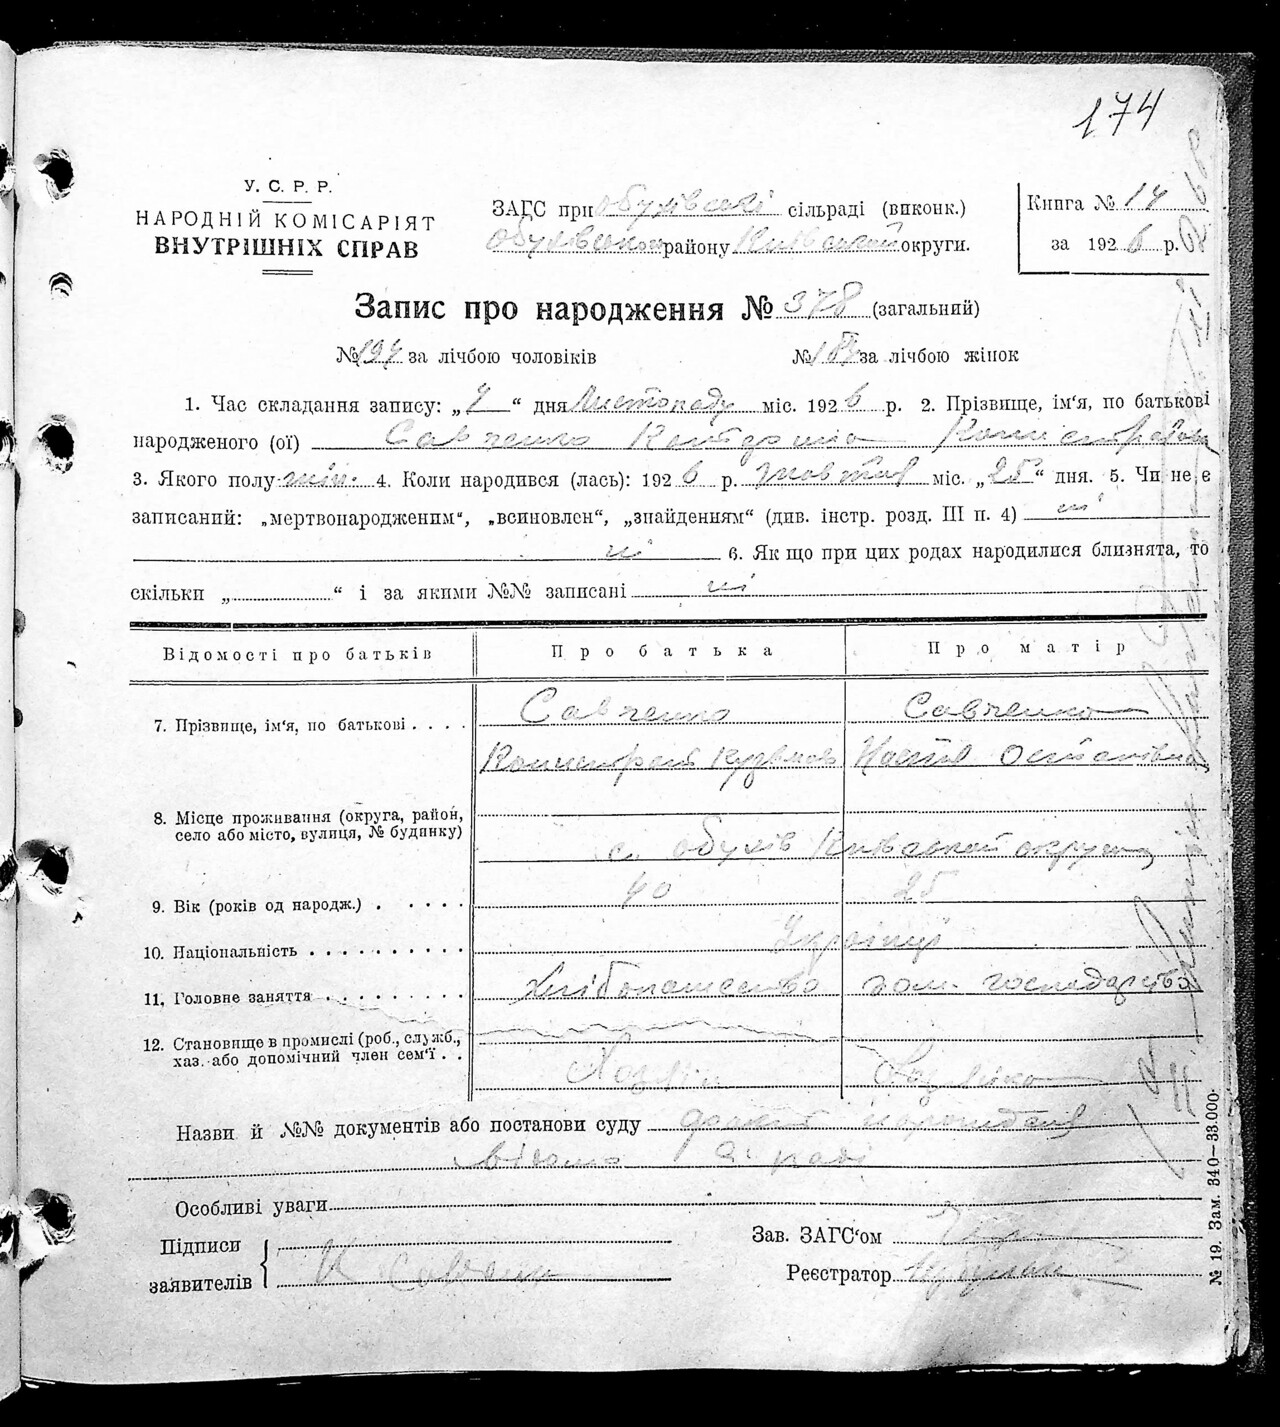 174
У. С. Р. Р.
НАРОДНІЙ КОМІСАРІЯТ
ВНУТРІШНІХ СПРАВ
ЗАГС при Обухівські сільраді (виконк.)
Обухівськои району Київської округи.
Книга № 14
за 1926 р.
Запис про народження № 378 (загальний)
№ 194 за лічбою чоловіків № 184 за лічбою жінок
1. Час складання запису: „ “ дня Листопаду міс. 1926 р. 2. Прізвище, ім'я, по батькові
народженого (ої) Савченко Катерина
3. Якого полу жін. 4. Коли народився (лась): 1926 р. жовтня міс. „25“ дня. 5. Чи не є
записаний: „мертвонародженим“, „всиновлен“, „знайденням“ (див. інстр. розд. III п. 4) ні
ні 6. Як що при цих родах народилися близнята, то
скільки „ “ і за якими №№ записані ні
Відомості про батьків Про батька Про матір
7. Прізвище, ім'я, по батькові . . . . Савченко Савченко
Кузьмов Настя Остапівна
8. Місце проживання (округа, район,
село або місто, вулиця, № будинку)
с. Обухів Київської округи
9. Вік (років од народж.) . . . . . 40 25
10. Національність . . . . . . . . . . Українці
11. Головне заняття . . . . . . . . . Хлібопашество дом. господарство
12. Становище в промислі (роб., служб.,
хаз. або допомічний член сем'ї . .
Хозяїн Хозяйка
Назви й №№ документів або постанови суду
відомо раді
Особливі уваги
Підписи
заявителів
Савченко
Зав. ЗАГС'ом
Реєстратор
№ 19. Зам. 340—33.000.